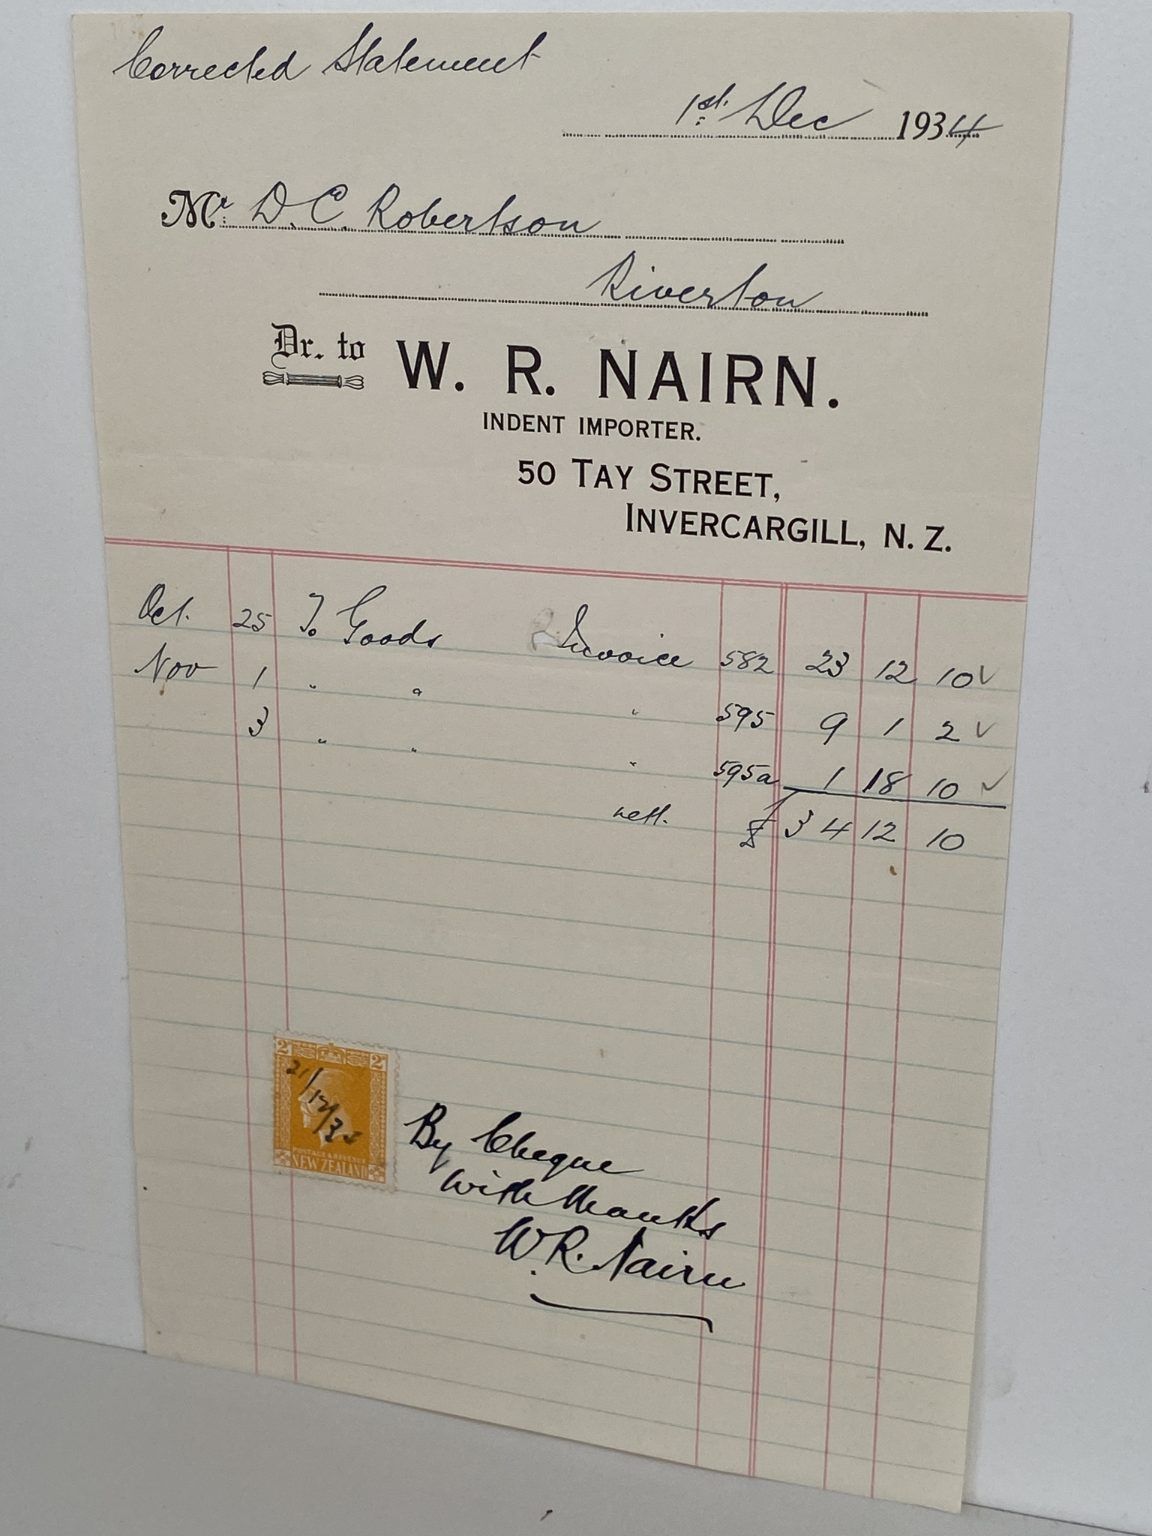 Corrected Statement
1st. Dec 1934
Mr. D.C. Robertson
Riverton
Dr. to W. R. NAIRN.
INDENT IMPORTER.
50 TAY STREET,
INVERCARGILL, N. Z.
Oct. 25 To Goods Invoice 582 23 12 10 ✓
Nov 1 " " " 595 9 1 2 ✓
3 " " " 595a 1 18 10 ✓
nett. £ 34 12 10
2 2
21/12/35
POSTAGE & REVENUE
NEW ZEALAND
By Cheque
with thanks
W.R. Nairn